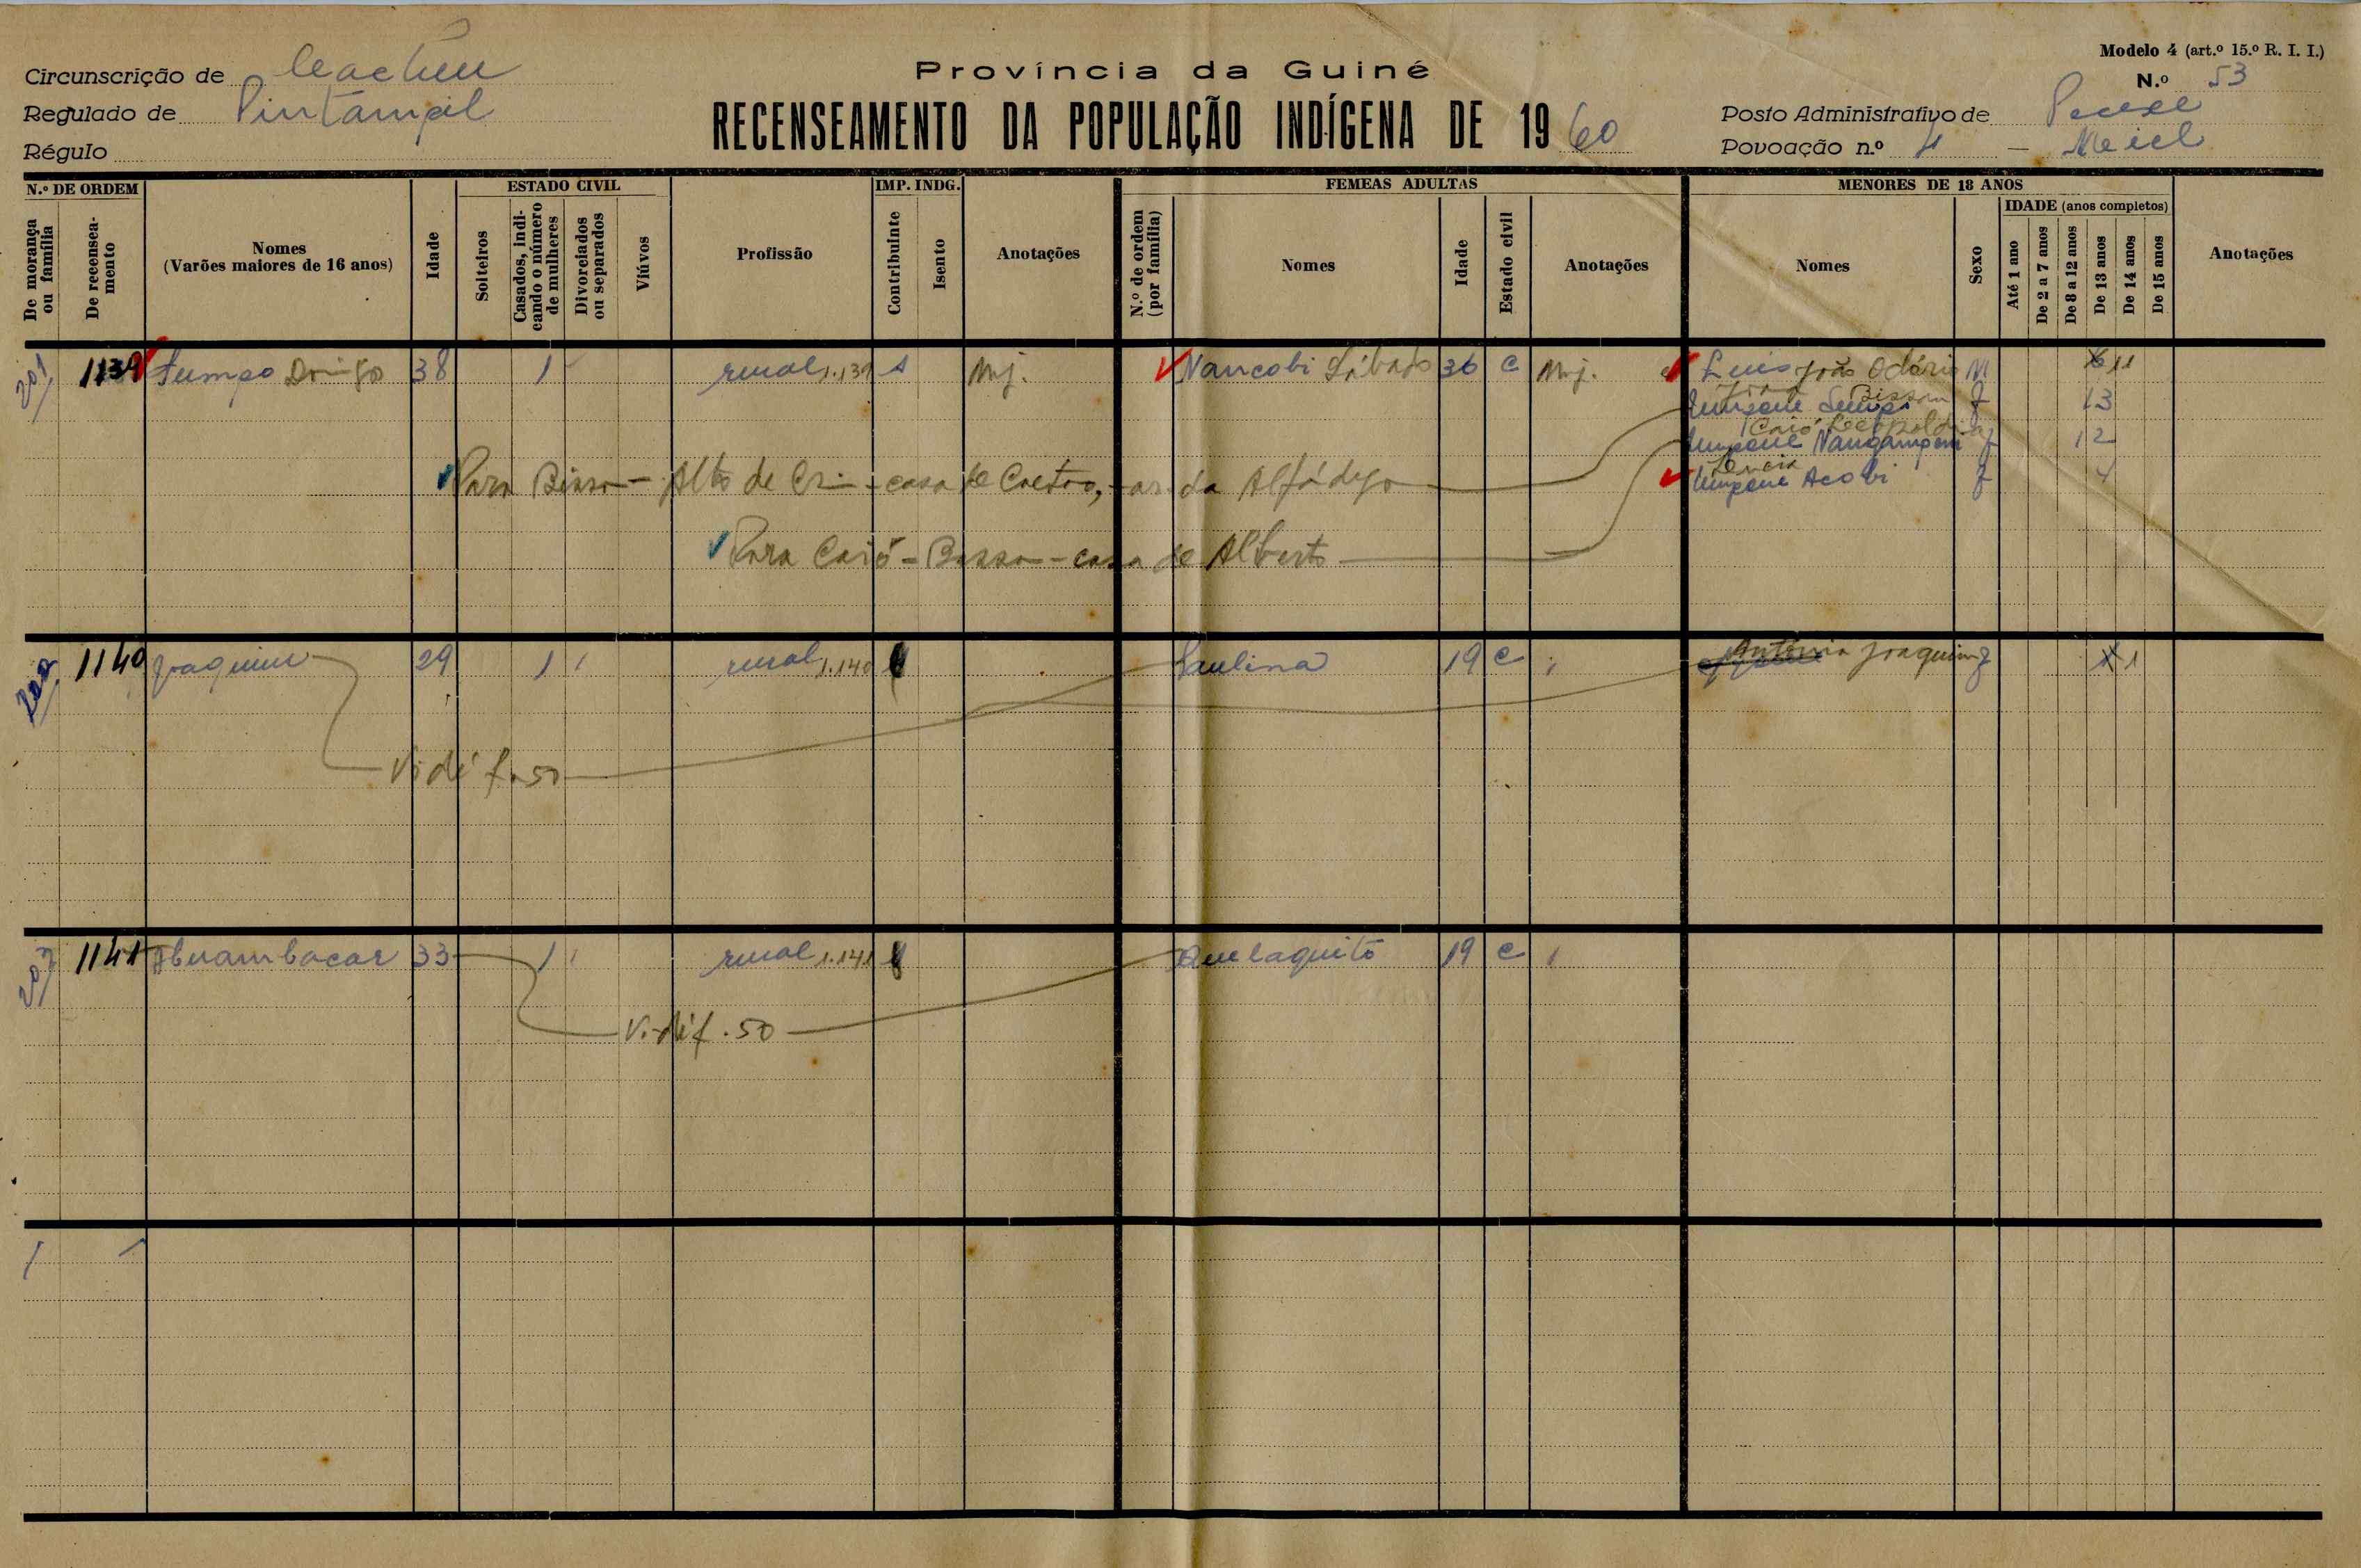 Modelo 4 (art.º 15.º R. I. I.)
Província da Guiné
N.º 53
Circunscrição de Cacheu
Regulado de Pintampil
Régulo
RECENSEAMENTO DA POPULAÇÃO INDÍGENA DE 1960
Posto Administrativo de Pecixe
Povoação n.º 4 —
N.º DE ORDEM
De morança ou família
De recensea-mento
Nomes
(Varões maiores de 16 anos)
Idade
ESTADO CIVIL
Solteiros
Casados, indi-cando o número de mulheres
Divorciados ou separados
Viúvos
Profissão
IMP. INDG.
Contribuinte
Isento
Anotações
FEMEAS ADULTAS
N.º de ordem (por família)
Nomes
Idade
Estado civil
Anotações
MENORES DE 18 ANOS
Nomes
Sexo
IDADE (anos completos)
Até 1 ano
De 2 a 7 anos
De 8 a 12 anos
De 13 anos
De 14 anos
De 15 anos
Anotações
201 1139 38 1 rural 1.139 1 Mj. Nancobi Sábado 36 C Mj. Luis João M 11
Bissau
f 13
Caió Leopoldina
Nangampene f 12
Acobi f 4
Para Bissau - Alto de Crim - casa de Caetano, da Alfádega
Para Caió - casa de Alberto
202 1140 Joaquim 29 1 rural 1.140 Paulina 19 C Antónia Joaquim f 1
Vidé f. 50
203 1141 33 1 rural 1.141 19 C
Vidé f. 50